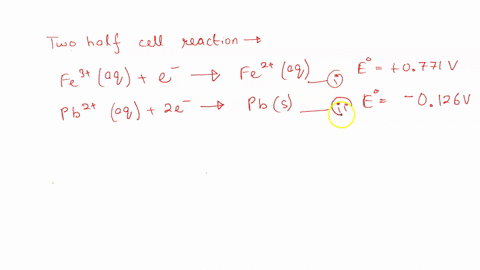 Two half cell reaction →
Fe³⁺ (aq) + e⁻ → Fe²⁺ (aq) — (i) E° = +0.771 V
Pb²⁺ (aq) + 2e⁻ → Pb (s) — (ii) E° = -0.126V